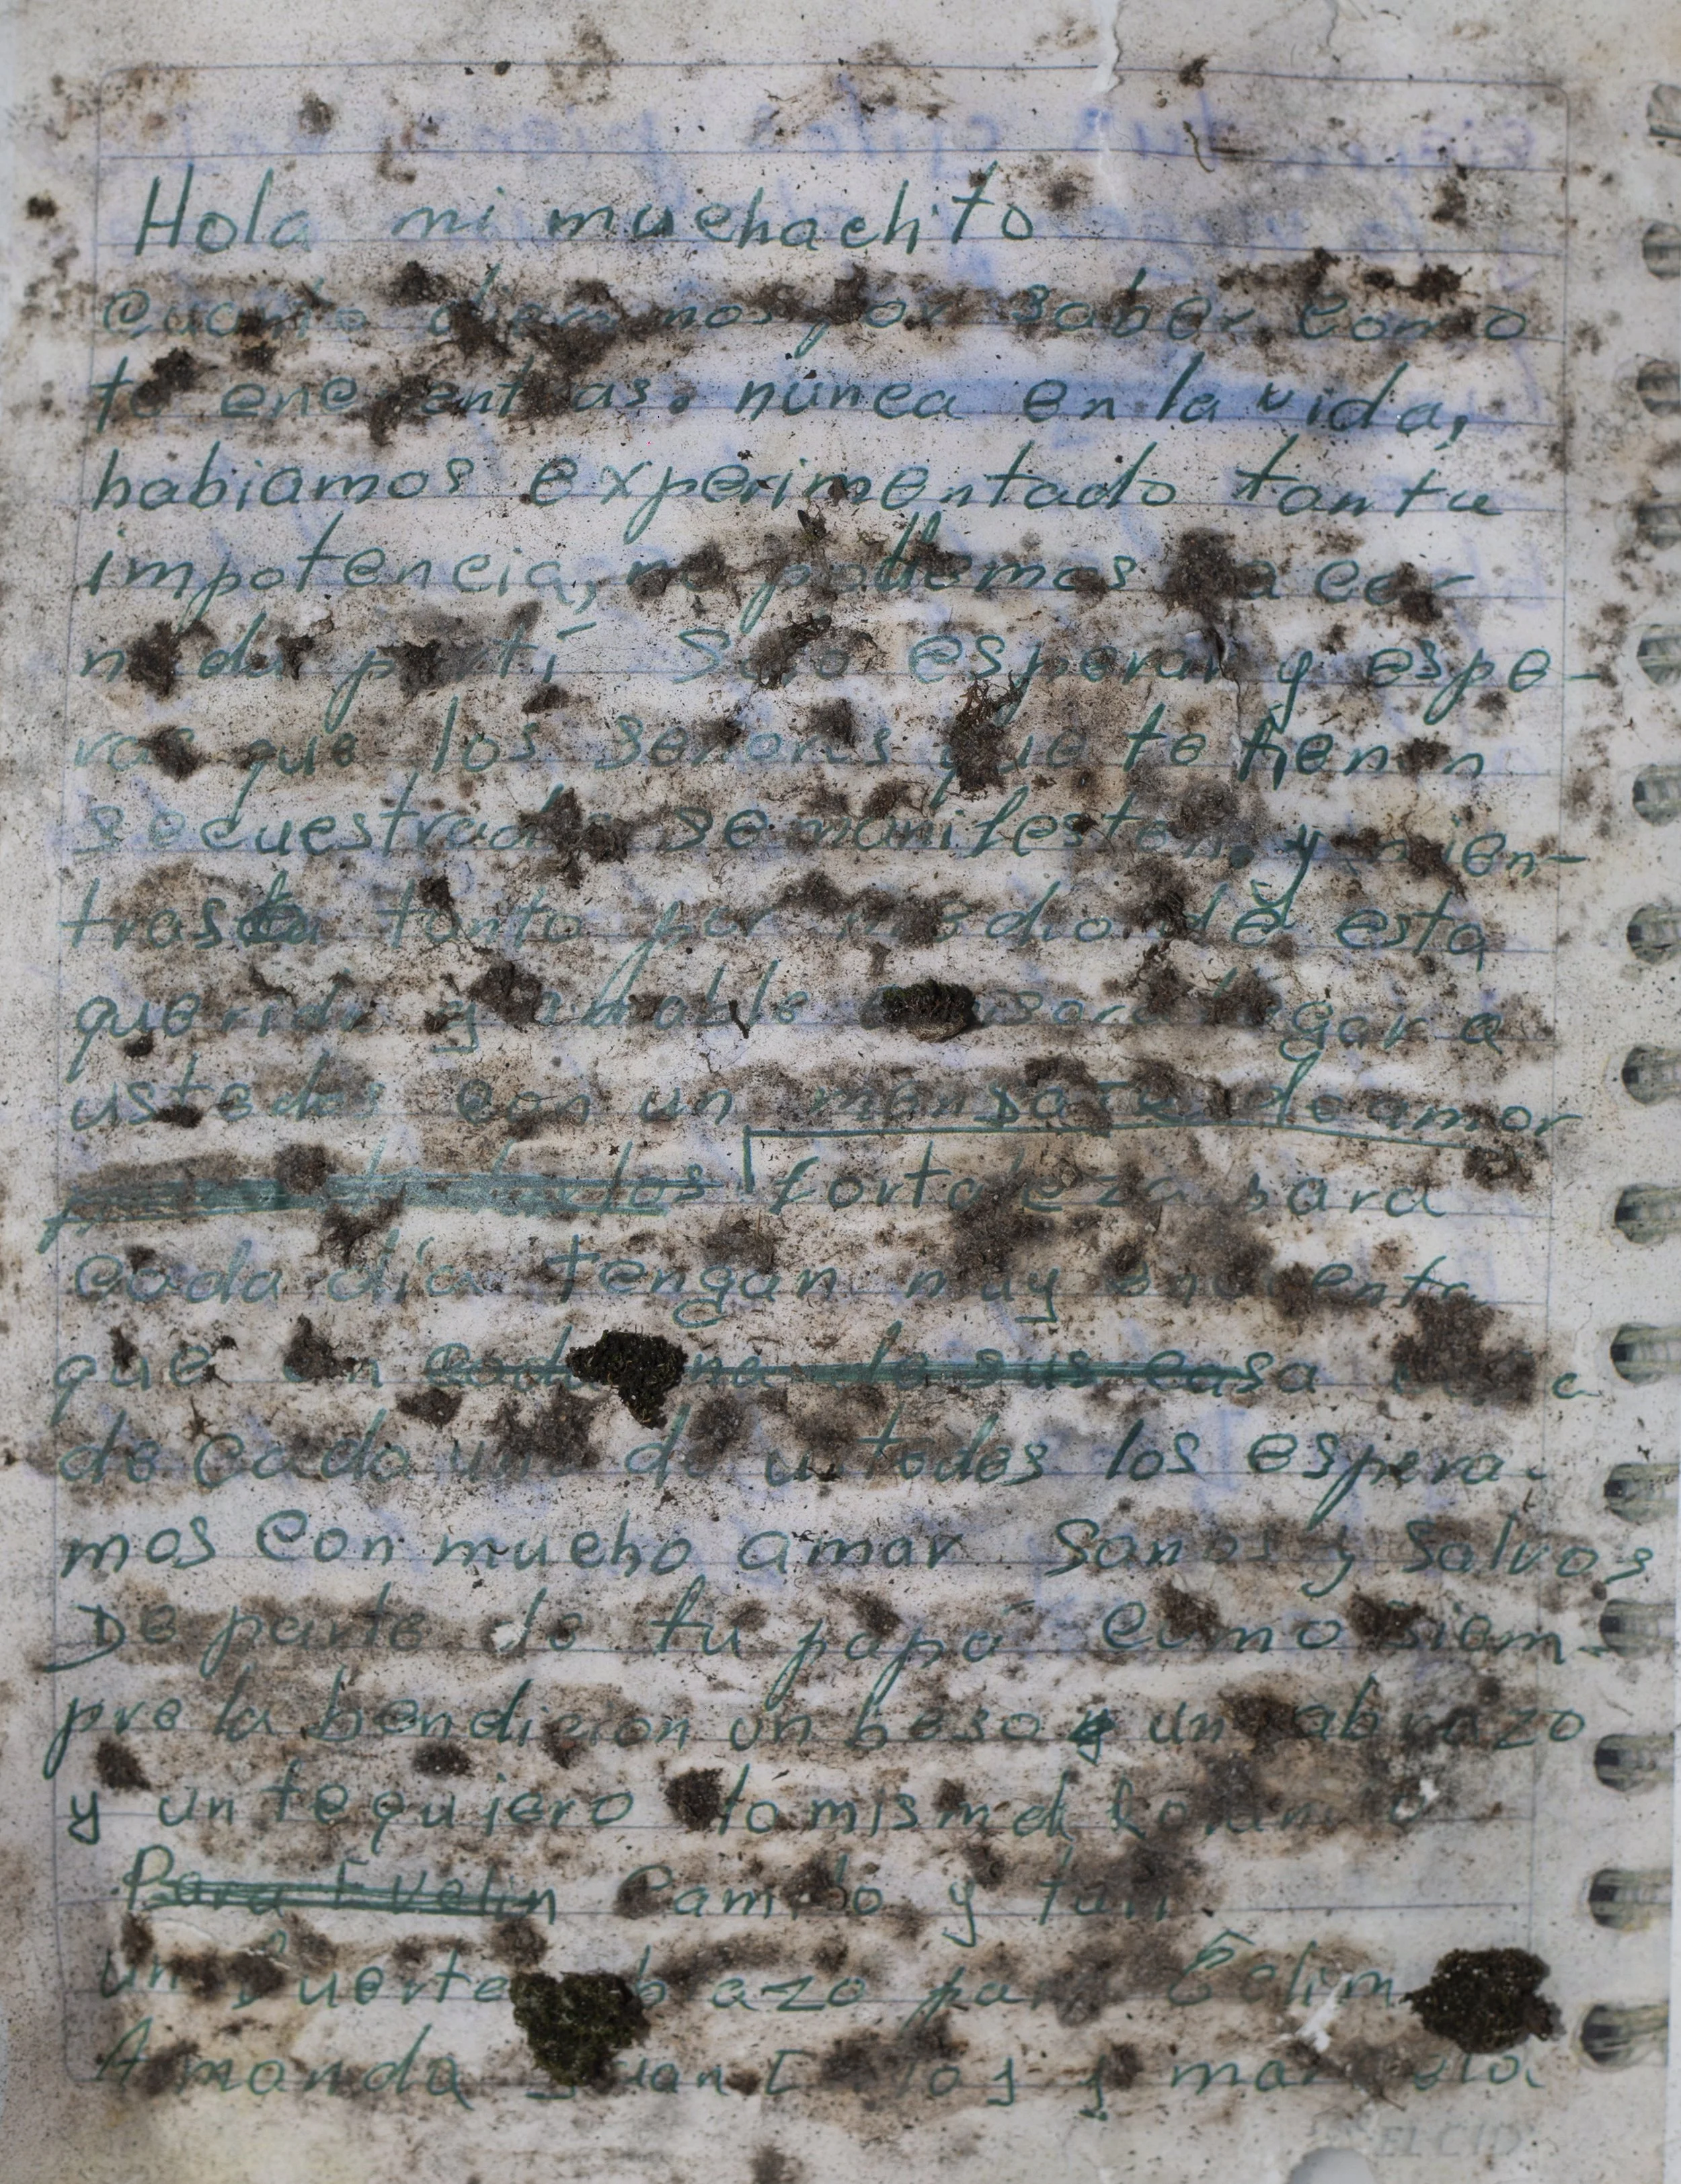 Hola mi muchachito
por saber como
te encuentras. nunca en la vida,
habiamos experimentado tanta
impotencia, no podemos hacer
nada por ti Solo esperar y espe-
rar que los señores que te tienen
secuestrado se manifesten. y mien-
tras tanto por medio de esta
querida y amable emisora llegar a
ustedes con un mensaje de amor
fortaleza para
cada día tengan muy encuenta
que en casa
de cada uno de ustedes los espera-
mos con mucho amor Sanos y Salvos
De parte de tu papá como siem-
pre la bendicion un beso y un abrazo
y un te quiero lo mismo
Para Evelin Camilo y
un fuerte abrazo para
Amanda Juan Carlos y
EL CID